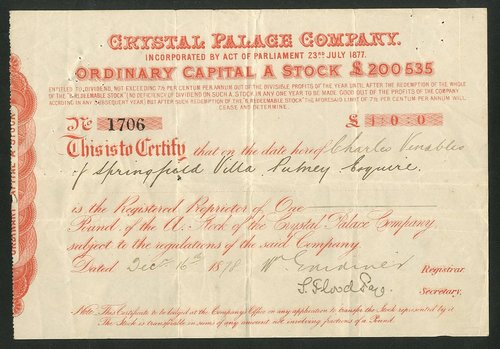 CRYSTAL PALACE COMPANY.
INCORPORATED BY ACT OF PARLIAMENT 23RD JULY 1877.
ORDINARY CAPITAL A STOCK £200535
ENTITLED TO DIVIDEND, NOT EXCEEDING 7½ PER CENTUM PER ANNUM OUT OF THE DIVISIBLE PROFITS OF THE YEAR UNTIL AFTER THE REDEMPTION OF THE WHOLE
OF THE "B REDEEMABLE STOCK" (NO DEFICIENCY OF DIVIDEND ON SUCH A. STOCK IN ANY ONE YEAR TO BE MADE GOOD OUT OF THE PROFITS OF THE COMPANY
ACCRUING IN ANY SUBSEQUENT YEAR) BUT AFTER SUCH REDEMPTION OF THE "B REDEEMABLE STOCK" THE AFORESAID LIMIT OF 7½ PER CENTUM PER ANNUM WILL
CEASE AND DETERMINE.
No 1706 £ 1:0:0
This is to Certify that on the date hereof Charles Venables
of Springfield Villa Putney Esquire
is the Registered Proprietor of One
Pound, of the A. Stock of the Crystal Palace Company,
subject to the regulations of the said Company.
Dated Decr 16th 1898 Wm Gardiner Registrar.
S. Flood Page Secretary.
Note. This Certificate to be lodged at the Company's Office on any application to transfer the Stock represented by it.
The Stock is transferable in sums of any amount not involving fractions of a Pound.
ORDINARY CAPITAL A STOCK